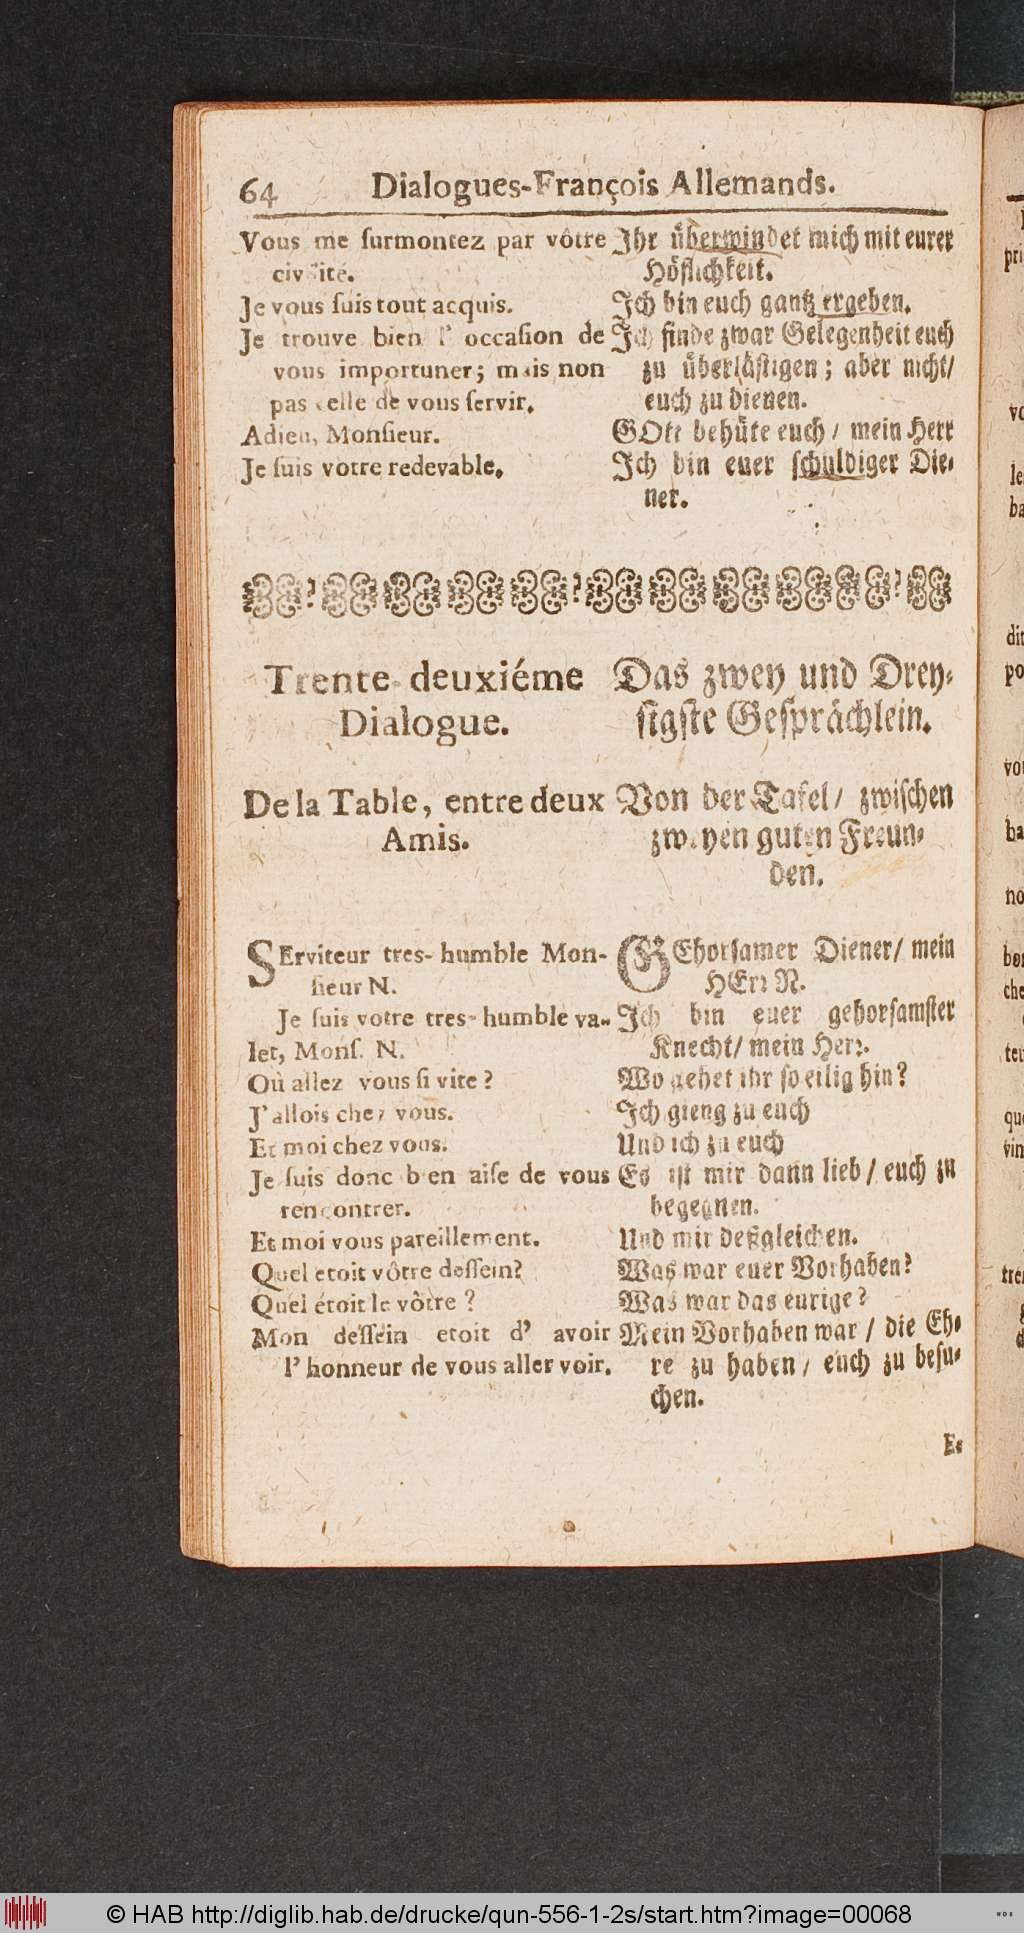 64 Dialogues-François Allemands.
Vous me surmontez par vôtre
civilité.
Je vous suis tout acquis.
Je trouve bien l' occasion de
vous importuner; mais non
pas celle de vous servir.
Adieu, Monsieur.
Je suis votre redevable.
Ihr überwindet mich mit eurer
Höflichkeit.
Ich bin euch gantz ergeben.
Ich finde zwar Gelegenheit euch
zu überlästigen; aber nicht/
euch zu dienen.
GOtt behüte euch / mein Herr
Ich bin euer schuldiger Die-
ner.
Trente-deuxiéme
Dialogue.
Das zwey und Drey-
sigste Gesprächlein.
De la Table, entre deux
Amis.
Von der Tafel/ zwischen
zweyen guten Freun-
den.
SErviteur tres-humble Mon-
sieur N.
Je suis votre tres-humble va-
let, Mons. N.
Où allez vous si vite?
J'allois chez vous.
Et moi chez vous.
Je suis donc bien aise de vous
rencontrer.
Et moi vous pareillement.
Quel etoit vôtre dessein?
Quel étoit le vôtre?
Mon dessein etoit d' avoir
l' honneur de vous aller voir.
GEhorsamer Diener/ mein
HErr N.
Ich bin euer gehorsamster
Knecht/ mein Herr.
Wo gehet ihr so eilig hin?
Ich gieng zu euch
Und ich zu euch
Es ist mir dann lieb/ euch zu
begegnen.
Und mir deßgleichen.
Was war euer Vorhaben?
Was war das eurige?
Mein Vorhaben war / die Eh-
re zu haben / euch zu besu-
chen.
Es
© HAB http://diglib.hab.de/drucke/qun-556-1-2s/start.htm?image=00068